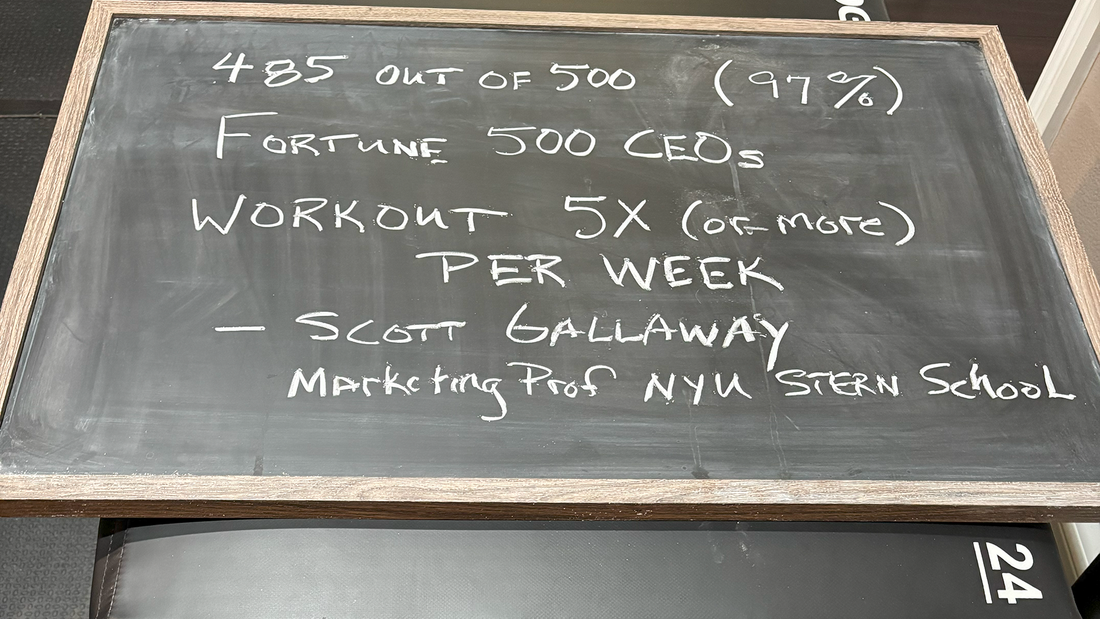 485 OUT OF 500 (97%)
FORTUNE 500 CEOs
WORKOUT 5X (or more)
PER WEEK
— SCOTT GALLAWAY
Marketing Prof NYU STERN School
24